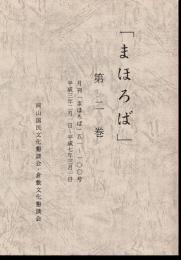 「まほろば」
第二巻
月刊「まほろば」五一~一〇〇号
平成三年二月一日~平成七年三月一日
岡山国民文化懇談会・倉敷文化懇談会